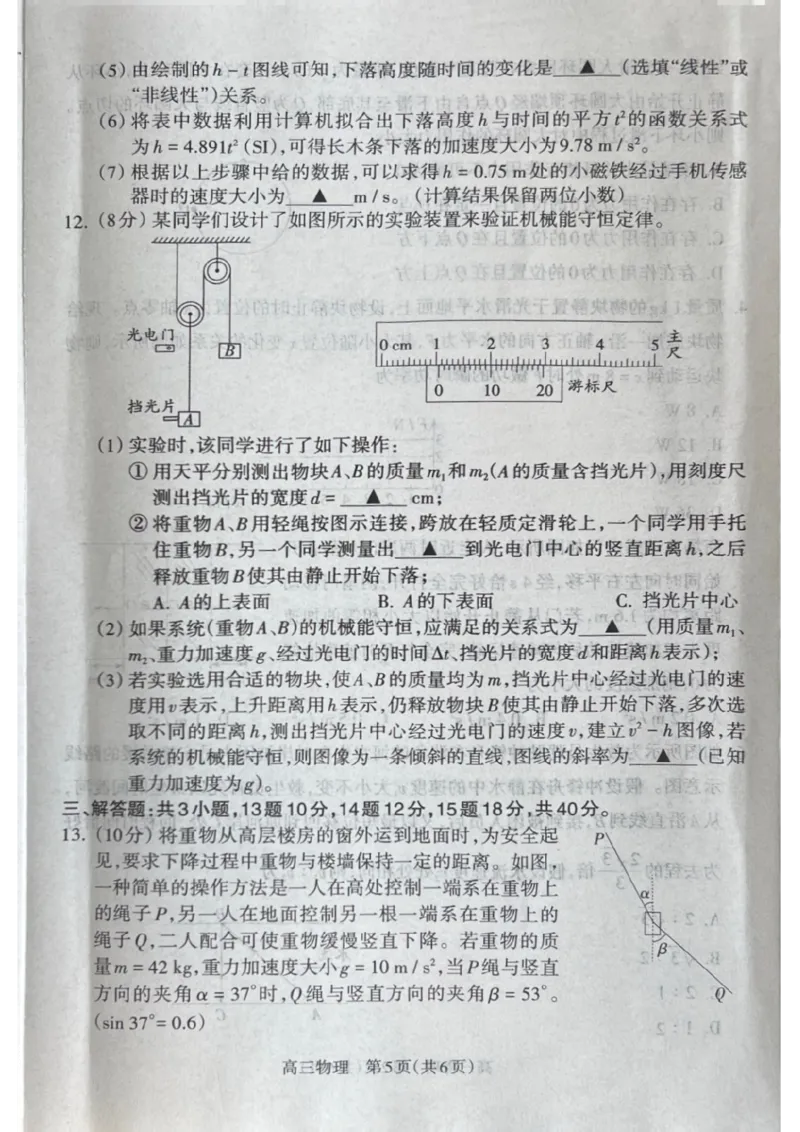 (5) 由绘制的h-t图线可知,下落高度随时间的变化是 ▲ (选填“线性”或
“非线性”)关系。
(6) 将表中数据利用计算机拟合出下落高度h与时间的平方t²的函数关系式
为h = 4.891t² (SI),可得长木条下落的加速度大小为9.78 m / s²。
(7) 根据以上步骤中给的数据,可以求得h = 0.75 m处的小磁铁经过手机传感
器时的速度大小为 ▲ m / s。(计算结果保留两位小数)
12. (8分) 某同学们设计了如图所示的实验装置来验证机械能守恒定律。
光电门
B
挡光片
A
0 cm 1 2 3 4 5 主尺
0 10 20 游标尺
(1) 实验时,该同学进行了如下操作:
① 用天平分别测出物块A、B的质量m₁和m₂(A的质量含挡光片),用刻度尺
测出挡光片的宽度d = ▲ cm;
② 将重物A、B用轻绳按图示连接,跨放在轻质定滑轮上,一个同学用手托
住重物B,另一个同学测量出 ▲ 到光电门中心的竖直距离h,之后
释放重物B使其由静止开始下落;
A. A的上表面 B. A的下表面 C. 挡光片中心
(2) 如果系统(重物A、B)的机械能守恒,应满足的关系式为 ▲ (用质量m₁、
m₂、重力加速度g、经过光电门的时间Δt、挡光片的宽度d和距离h表示);
(3) 若实验选用合适的物块,使A、B的质量均为m,挡光片中心经过光电门的速
度用v表示,上升距离用h表示,仍释放物块B使其由静止开始下落,多次选
取不同的距离h,测出挡光片中心经过光电门的速度v,建立v² - h图像,若
系统的机械能守恒,则图像为一条倾斜的直线,图线的斜率为 ▲ (已知
重力加速度为g)。
三、解答题:共3小题,13题10分,14题12分,15题18分,共40分。
13. (10分) 将重物从高层楼房的窗外运到地面时,为安全起
见,要求下降过程中重物与楼墙保持一定的距离。如图,
一种简单的操作方法是一人在高处控制一端系在重物上
的绳子P,另一人在地面控制另一根一端系在重物上的
绳子Q,二人配合可使重物缓慢竖直下降。若重物的质
量m = 42 kg,重力加速度大小g = 10 m / s²,当P绳与竖直
方向的夹角α = 37°时,Q绳与竖直方向的夹角β = 53°。
(sin 37°= 0.6)
P
α
β
Q
高三物理 第5页(共6页)